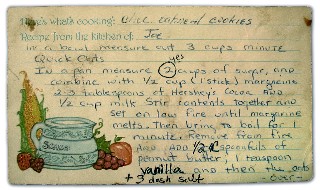 Here's what's cooking: Uncooked cookies
Recipe from the kitchen of: Joe
In a bowl measure out 3 cups minute
Quick Oats
yes
In a pan measure 2 cups of sugar, and
combine with 1/2 cup (1 stick) margarine
2-3 tablespoons of Hershey's Cocoa AND
1/2 cup milk Stir contents together and
Set on low fire until margarine
melts. Then bring to boil for 1
minute. Remove from fire
And add 1/2 c spoonfuls of
peanut butter, 1 teaspoon
vanilla and then the oats
+ 3 dash salt
- over -